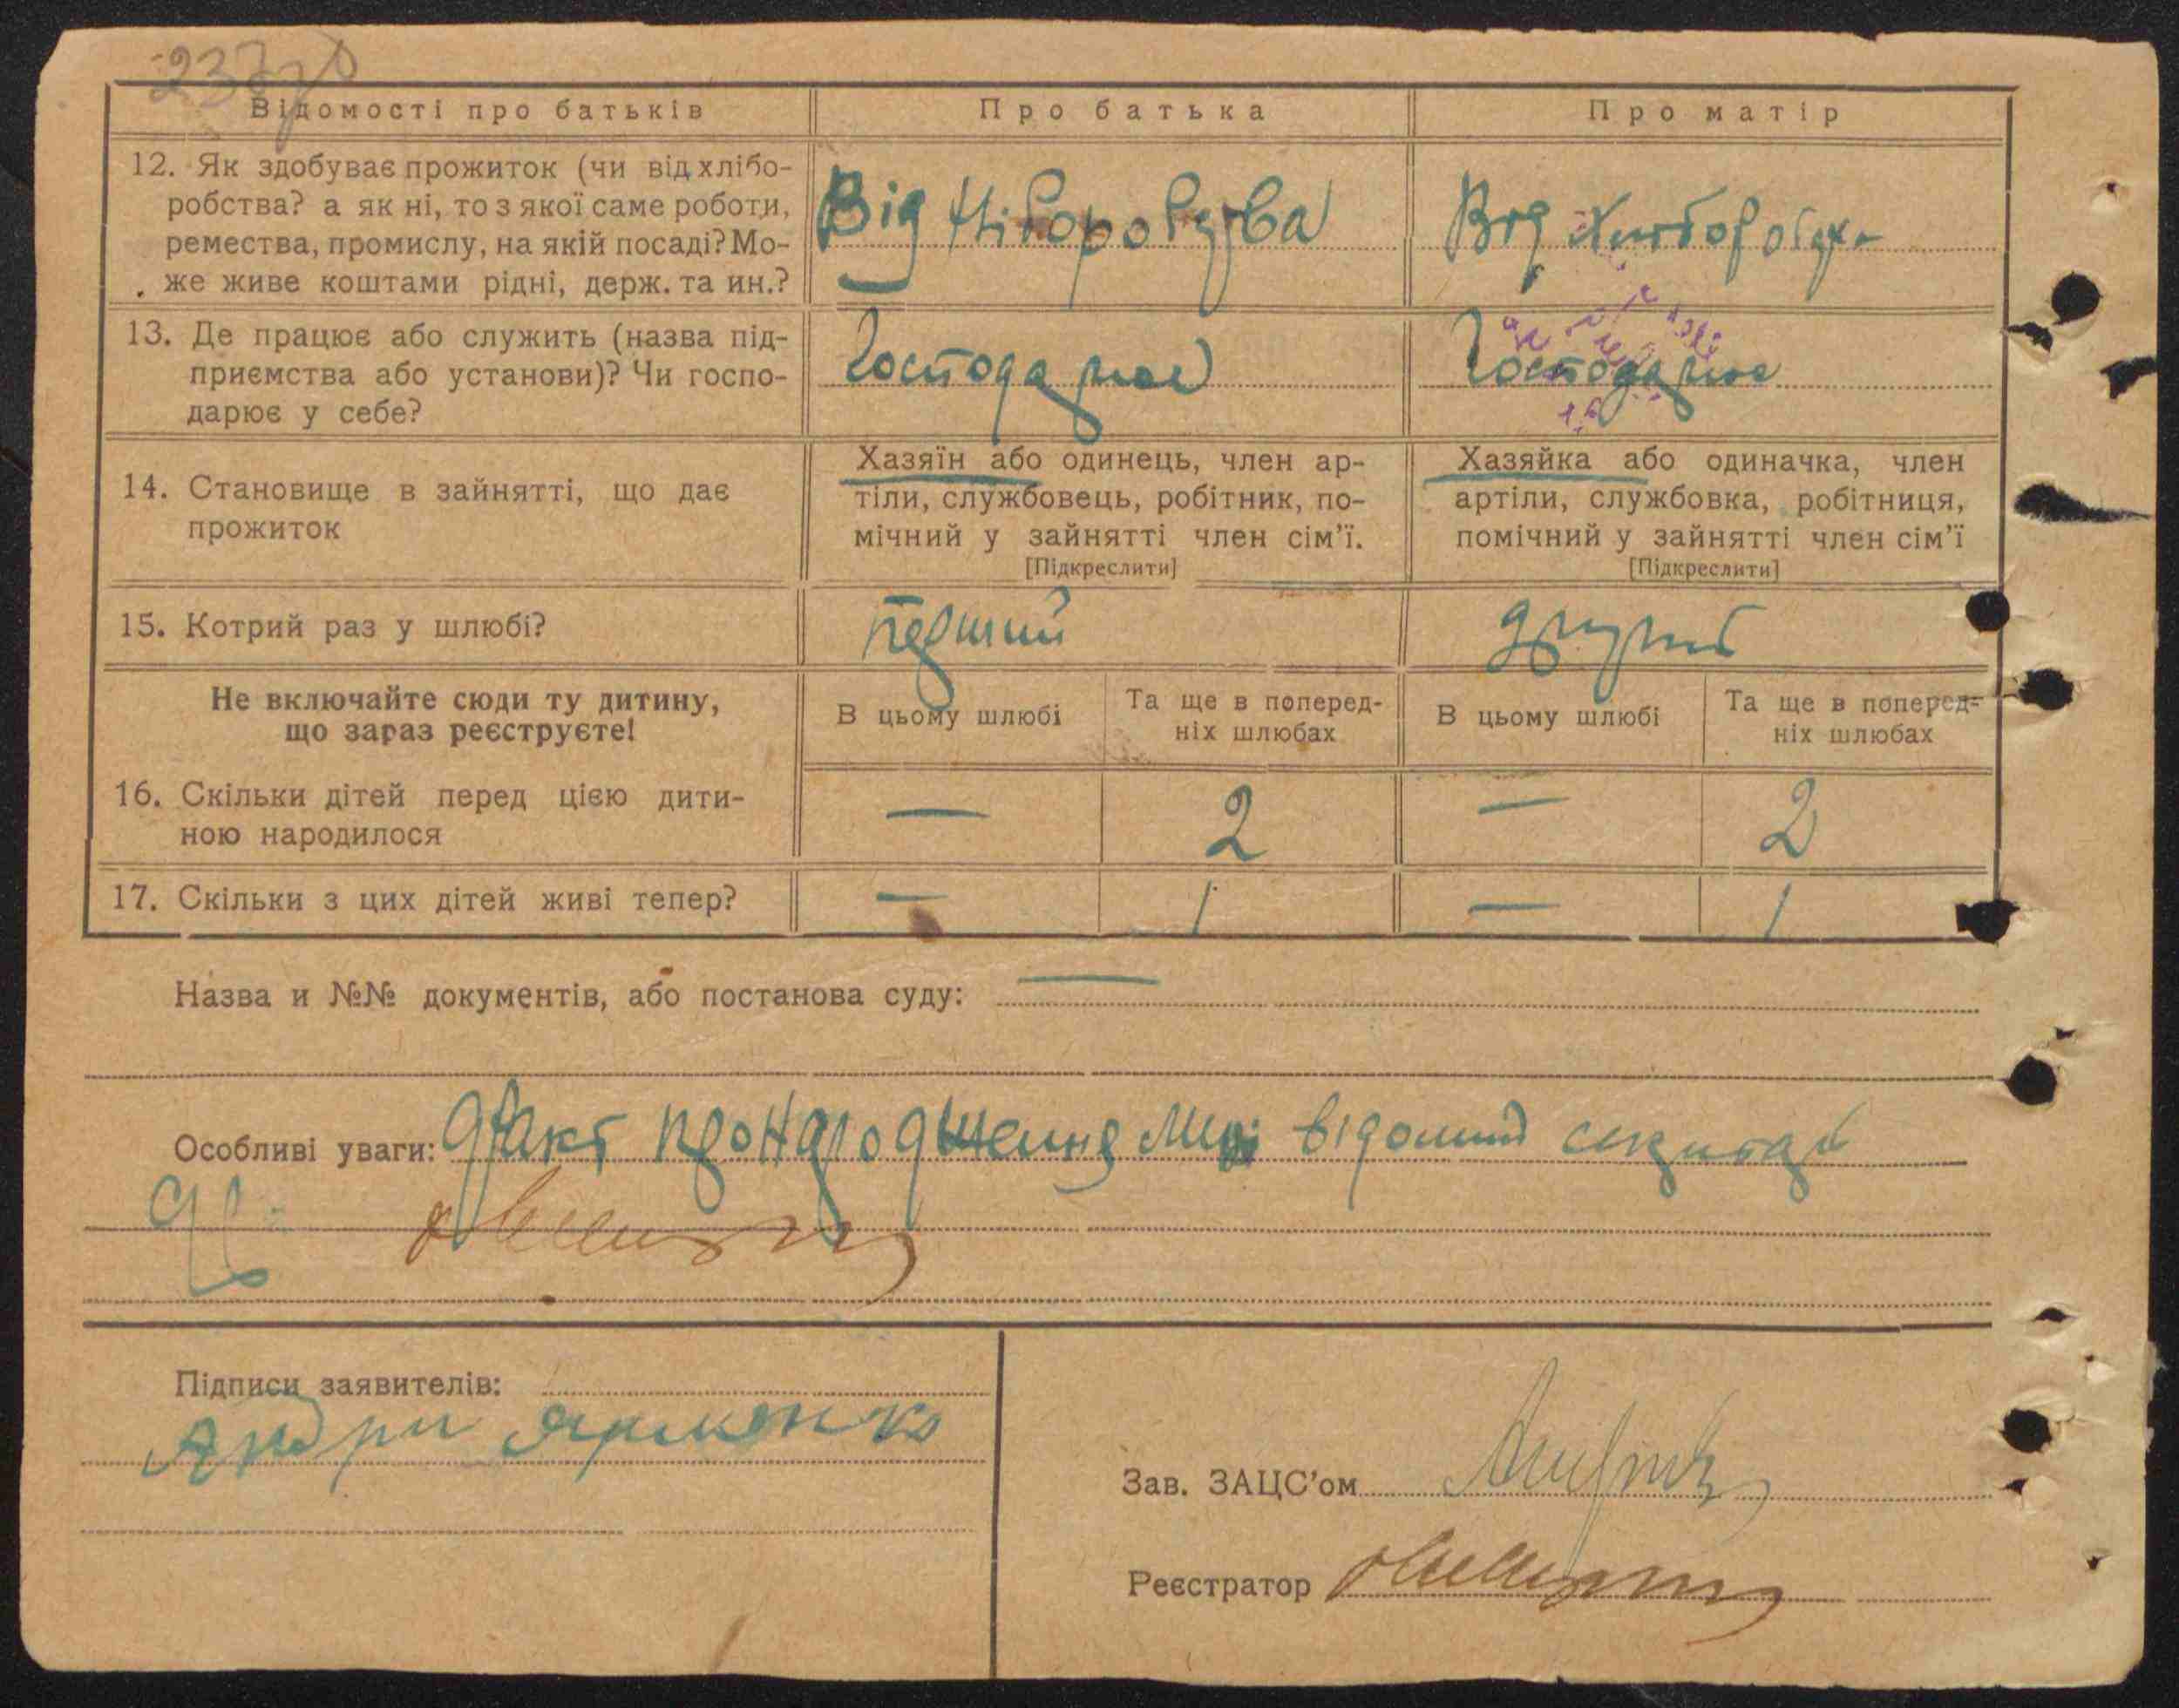 Відомості про батьків
Про батька
Про матір
12. Як здобуває прожиток (чи від хлібо-
робства? а як ні, то з якої саме роботи,
ремества, промислу, на якій посаді? Мо-
же живе коштами рідні, держ. та ин.?
Від
Від
13. Де працює або служить (назва під-
приємства або установи)? Чи госпо-
дарює у себе?
Господарює
Господарює
14. Становище в зайнятті, що дає
прожиток
Хазяїн або одинець, член ар-
тіли, службовець, робітник, по-
мічний у зайнятті член сім'ї.
[Підкреслити]
Хазяйка або одиначка, член
артіли, службовка, робітниця,
помічний у зайнятті член сім'ї
[Підкреслити]
15. Котрий раз у шлюбі?
перший
другий
Не включайте сюди ту дитину,
що зараз реєструєте!
В цьому шлюбі
Та ще в поперед-
ніх шлюбах
В цьому шлюбі
Та ще в поперед-
ніх шлюбах
16. Скільки дітей перед цією дити-
ною народилося
—
2
—
2
17. Скільки з цих дітей живі тепер?
—
1
—
1
Назва и №№ документів, або постанова суду: —
Особливі уваги: факт про народження мені відомий
Підписи заявителів:
Андрій Яременко
Зав. ЗАЦС'ом
Реєстратор